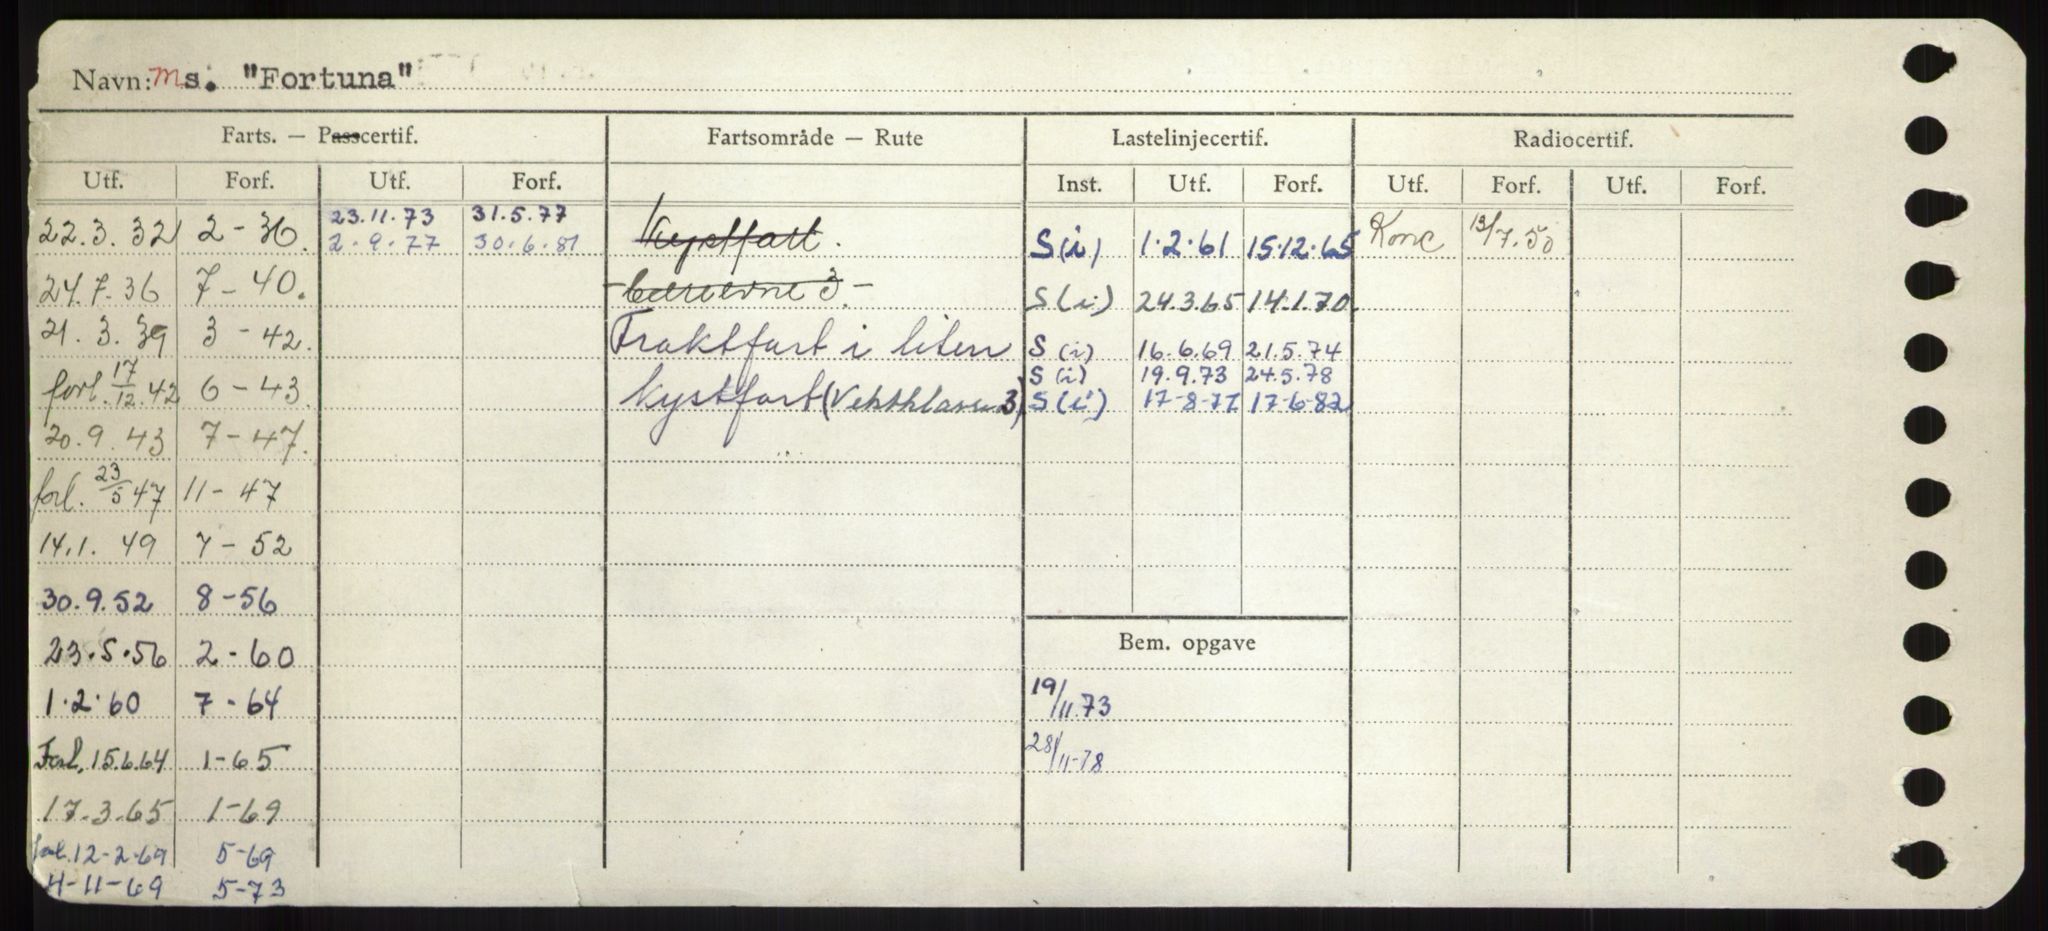 Navn: Ms. "Fortuna"
Farts. — Passcertif. Fartsområde — Rute Lastelinjecertif. Radiocertif.
Utf. Forf. Utf. Forf. Inst. Utf. Forf. Utf. Forf. Utf. Forf.
22.3.32 2-36. 23.11.73 31.5.77 Kystfart. S(i) 1.2.61 15.12.65 Konc 13/7.50
2.9.77 30.6.81
24.7.36 7-40. 3.- S(i) 24.3.65 14.1.70.
21.3.39 3-42. Fraktfart i liten S(i) 16.6.69 21.5.74
S(i) 19.9.73 24.5.78
forl. 17/12.42 6-43 kystfart (Vektklasse 3) S(i) 17-8-77 17-6-82
20.9.43 7-47.
forl. 23/5 47 11-47
14.1.49 7-52
30.9.52 8-56
23.5.56 2-60 Bem. opgave
1.2.60 7-64 19/11.73
Forl. 15.6.64 1-65 28/11-78
17.3.65 1-69
forl. 12-2-69 5-69
4-11-69 5-73